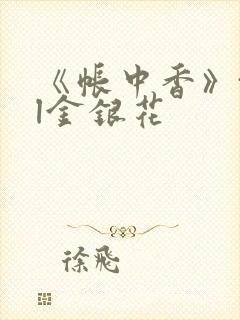 《帐中香》
|金银花
徐飛